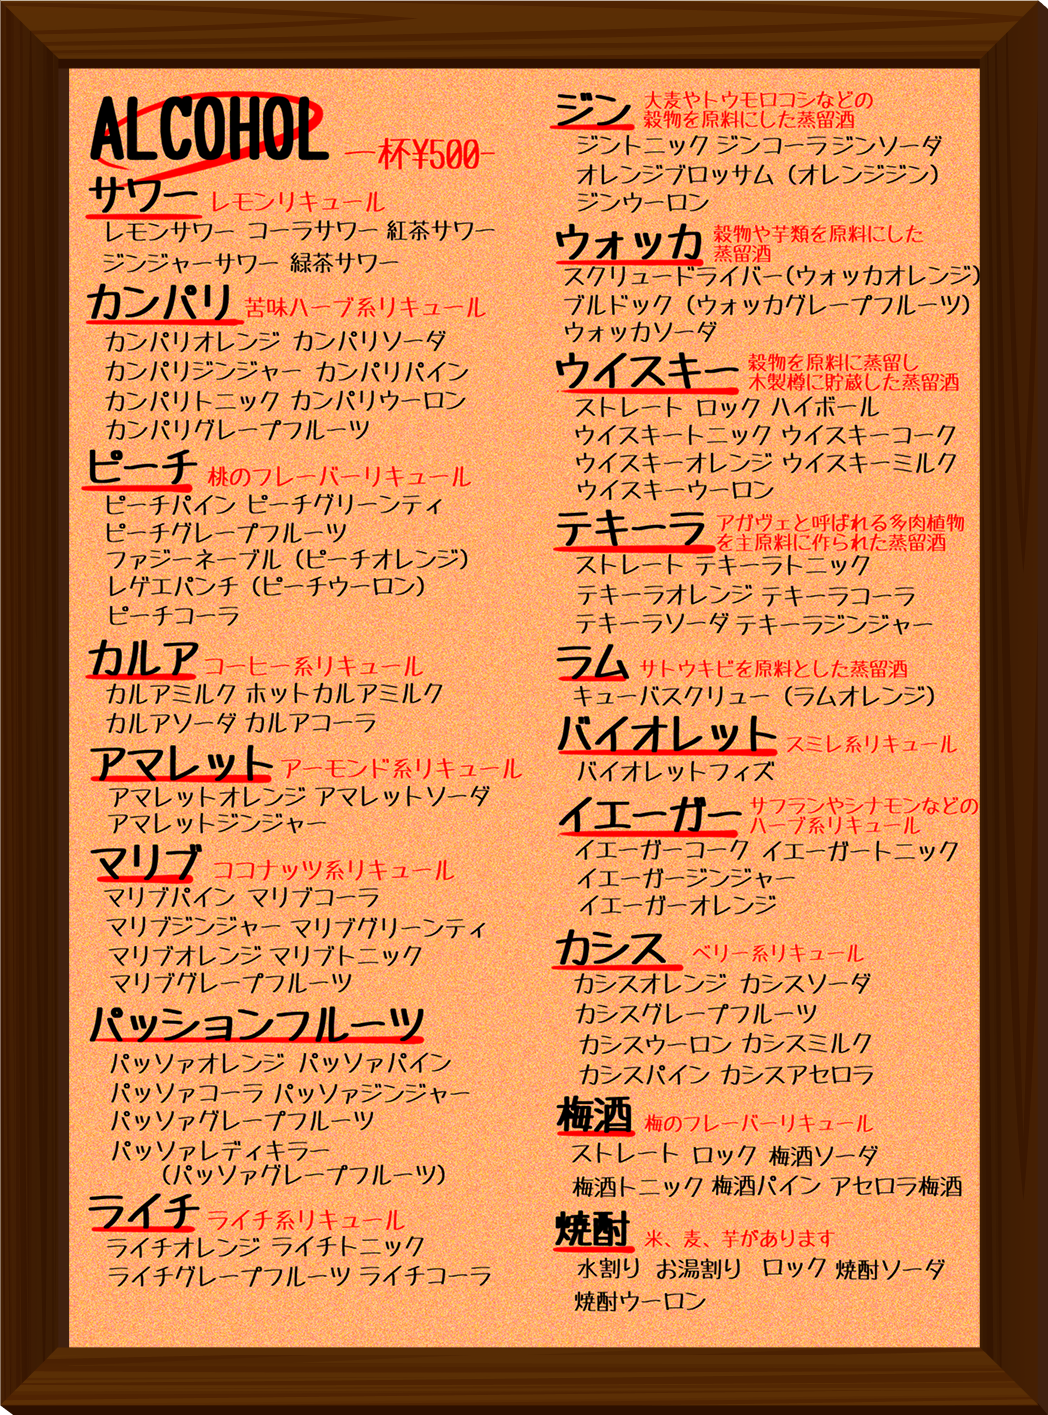 ALCOHOL
一杯¥500-
サワー レモンリキュール
レモンサワー コーラサワー 紅茶サワー
ジンジャーサワー 緑茶サワー
カンパリ 苦味ハーブ系リキュール
カンパリオレンジ カンパリソーダ
カンパリジンジャー カンパリパイン
カンパリトニック カンパリウーロン
カンパリグレープフルーツ
ピーチ 桃のフレーバーリキュール
ピーチパイン ピーチグリーンティ
ピーチグレープフルーツ
ファジーネーブル (ピーチオレンジ)
レゲエパンチ (ピーチウーロン)
ピーチコーラ
カルア コーヒー系リキュール
カルアミルク ホットカルアミルク
カルアソーダ カルアコーラ
アマレット アーモンド系リキュール
アマレットオレンジ アマレットソーダ
アマレットジンジャー
マリブ ココナッツ系リキュール
マリブパイン マリブコーラ
マリブジンジャー マリブグリーンティ
マリブオレンジ マリブトニック
マリブグレープフルーツ
パッションフルーツ
パッソァオレンジ パッソァパイン
パッソァコーラ パッソァジンジャー
パッソァグレープフルーツ
パッソァレディキラー
(パッソァグレープフルーツ)
ライチ ライチ系リキュール
ライチオレンジ ライチトニック
ライチグレープフルーツ ライチコーラ
ジン 大麦やトウモロコシなどの
穀物を原料にした蒸留酒
ジントニック ジンコーラ ジンソーダ
オレンジブロッサム (オレンジジン)
ジンウーロン
ウォッカ 穀物や芋類を原料にした
蒸留酒
スクリュードライバー(ウォッカオレンジ)
ブルドック (ウォッカグレープフルーツ)
ウォッカソーダ
ウイスキー 穀物を原料に蒸留し
木製樽に貯蔵した蒸留酒
ストレート ロック ハイボール
ウイスキートニック ウイスキーコーク
ウイスキーオレンジ ウイスキーミルク
ウイスキーウーロン
テキーラ アガヴェと呼ばれる多肉植物
を主原料に作られた蒸留酒
ストレート テキーラトニック
テキーラオレンジ テキーラコーラ
テキーラソーダ テキーラジンジャー
ラム サトウキビを原料とした蒸留酒
キューバスクリュー (ラムオレンジ)
バイオレット スミレ系リキュール
バイオレットフィズ
イエーガー サフランやシナモンなどの
ハーブ系リキュール
イエーガーコーク イエーガートニック
イエーガージンジャー
イエーガーオレンジ
カシス ベリー系リキュール
カシスオレンジ カシスソーダ
カシスグレープフルーツ
カシスウーロン カシスミルク
カシスパイン カシスアセロラ
梅酒 梅のフレーバーリキュール
ストレート ロック 梅酒ソーダ
梅酒トニック 梅酒パイン アセロラ梅酒
焼酎 米、麦、芋があります
水割り お湯割り ロック 焼酎ソーダ
焼酎ウーロン